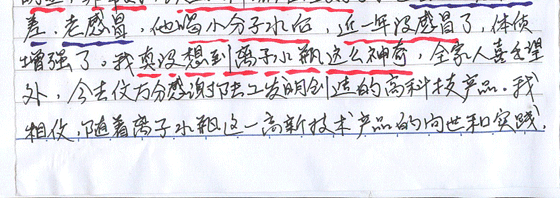 差。老感冒,他喝小分子水后,近一年没感冒了,体质
增强了。我真没想到离子水瓶这么神奇,全家人喜出望
外,今去仪万分感谢 发明创造的高科技产品。我
相仪,随着离子水瓶这一高新技术产品的问世和实践,